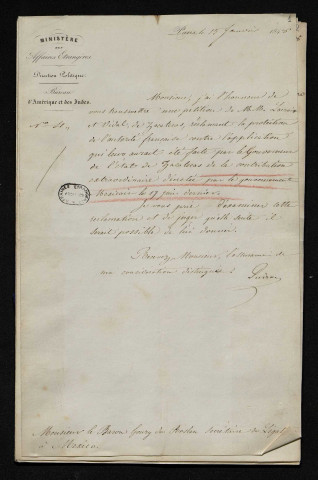 Paris le 15 Janvier
MINISTÈRE
DES
Affaires Etrangères
Direction Politique
Bureau
d'Amérique et des Indes.
Monsieur, j'ai l'honneur de
vous transmettre une pétition de M.M.
et Vidal, de Zacatecas, réclamant la protection
de l'autorité française contre l'application
qui leur aurait été faite par le Gouverneur
de l'état de Zacatecas de la contribution
extraordinaire décrétée par le gouvernement
Mexicain le 17 juin dernier.
Je vous prie d'examiner cette
réclamation et de juger quelle suite il
serait possible de lui donner.
Recevez, Monsieur, l'assurance de
ma considération distinguée.
Monsieur le Baron Gourg des Secrétaire de Légation
à Mexico.